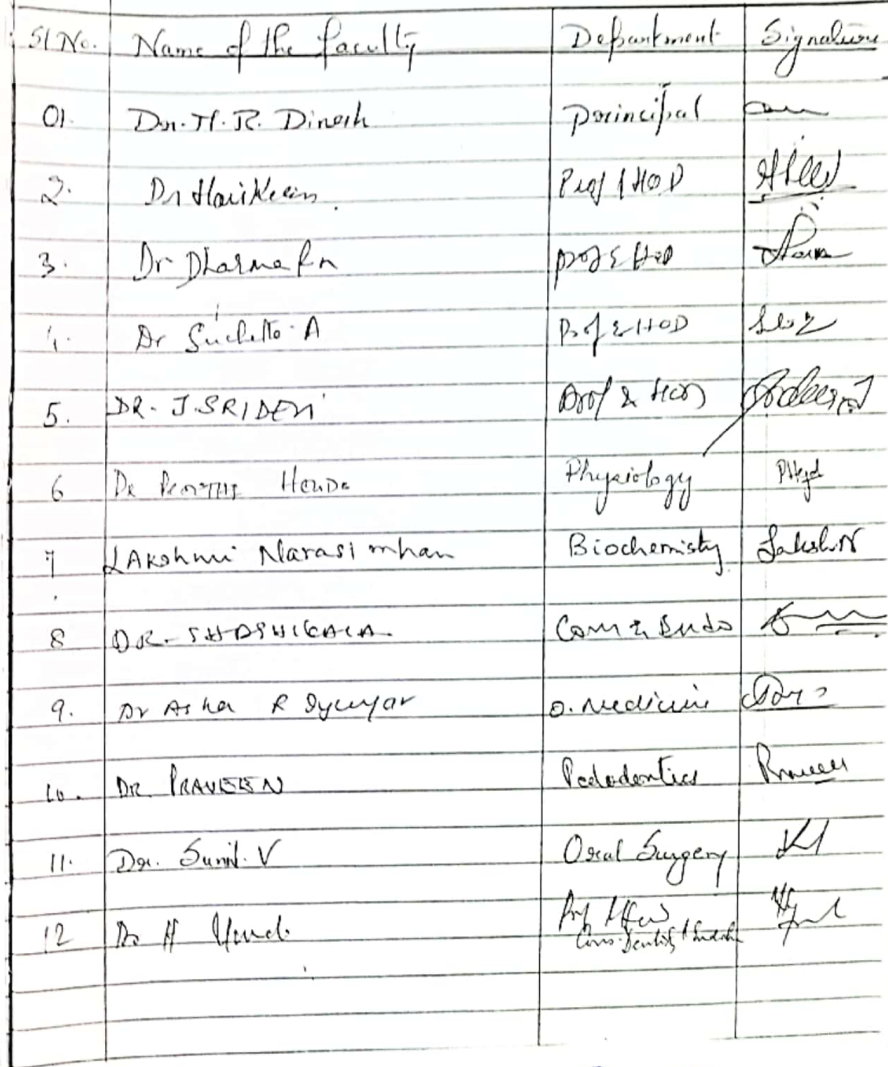 Sl No. Name of the faculty Department Signature
01. Dr. H. R. Dinesh Principal
2. Dr Harikiran Prof & HOD
3. Dr Dharma R n prof & HOD
Dr Suchetha A Prof & HOD
5. DR. J. SRIDEVI Prof & HOD
6 Dr Hegde Physiology
7 LAkshmi Narasimhan Biochemisty Laksh.N
8 DR. SHASHIKALA Cons & Endo
9. Dr Asha R Iyengar O. Medicine
10. DR PRAVEEN Pedodontics Praveen
11. Dr. Sunil. V Oral Surgery
12 Dr H Prof